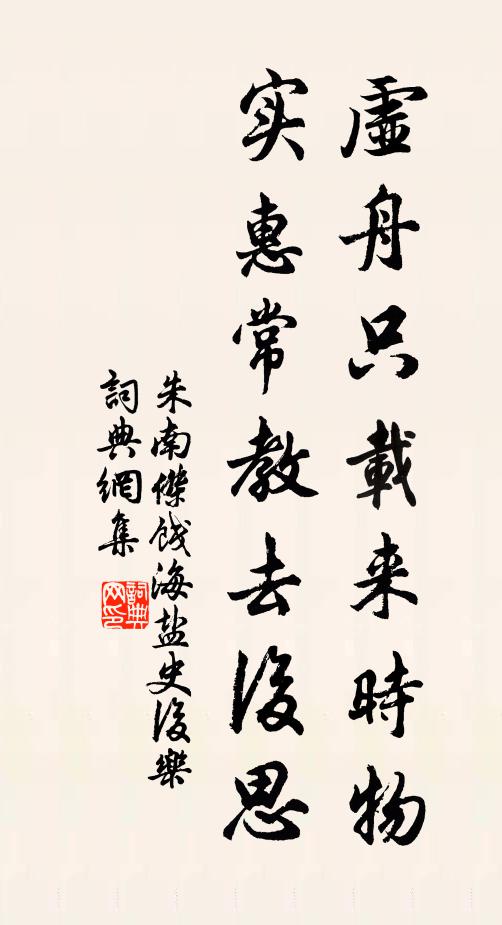 虛舟只載来時物
实惠常教去後思
朱南傑餞海盐史後樂
詞典網集
詞典网印